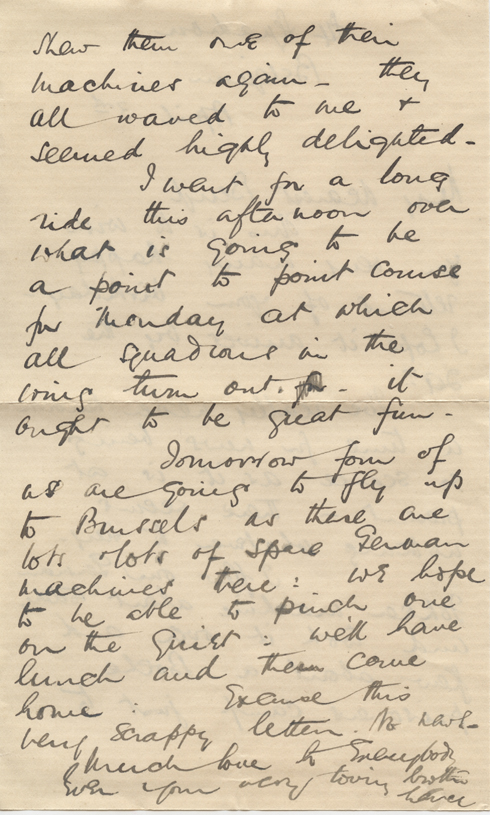 shew them one of their
machines again - they
all waved to me +
seemed highly delighted -
I went for a long
ride this afternoon over
what is going to be
a point to point course
for Monday at which
all squadrons in the
wing turn out. - it
ought to be great fun -
Tomorrow four of
us are going to fly up
to Brussels as there are
lots & lots of spare German
machines there : we hope
to be able to pinch one
on the quiet : we'll have
lunch and then come
home : Excuse this
very scrappy letter. No news -
Much love to Everybody
Ever your very loving brother